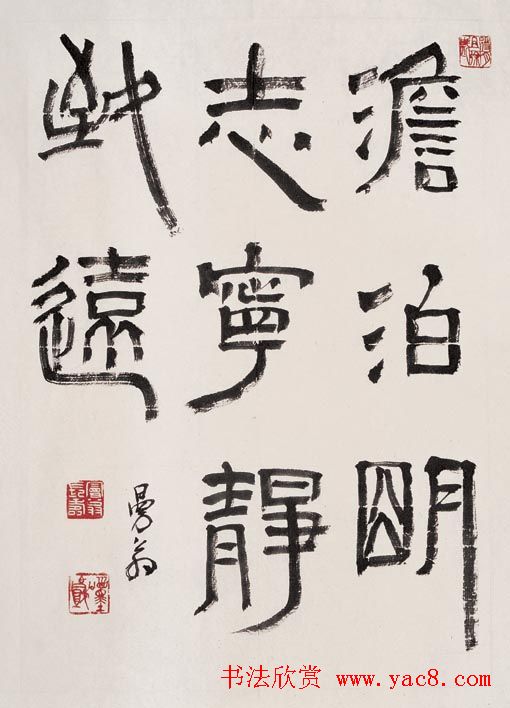 澹泊明
志寧靜
致遠
曼翁
书法欣赏 www.yac8.com